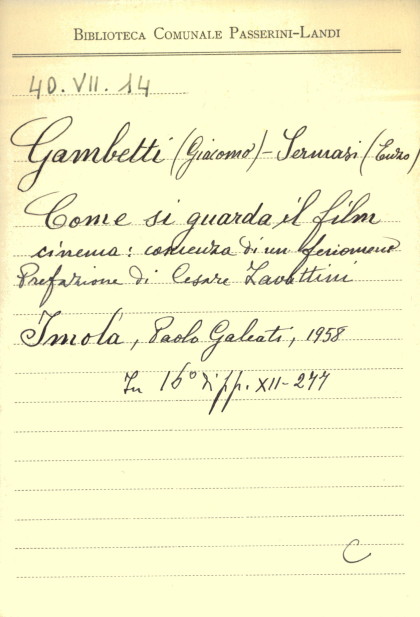 BIBLIOTECA COMUNALE PASSERINI-LANDI
40. VII. 14
Gambetti (Giacomo) - Sermasi (Enzo)
Come si guarda il film
cinema: coscienza di un fenomeno
Prefazione di Cesare Zavattini
Imola, Paolo Galeati, 1958
In 16° di pp. XII-277
C